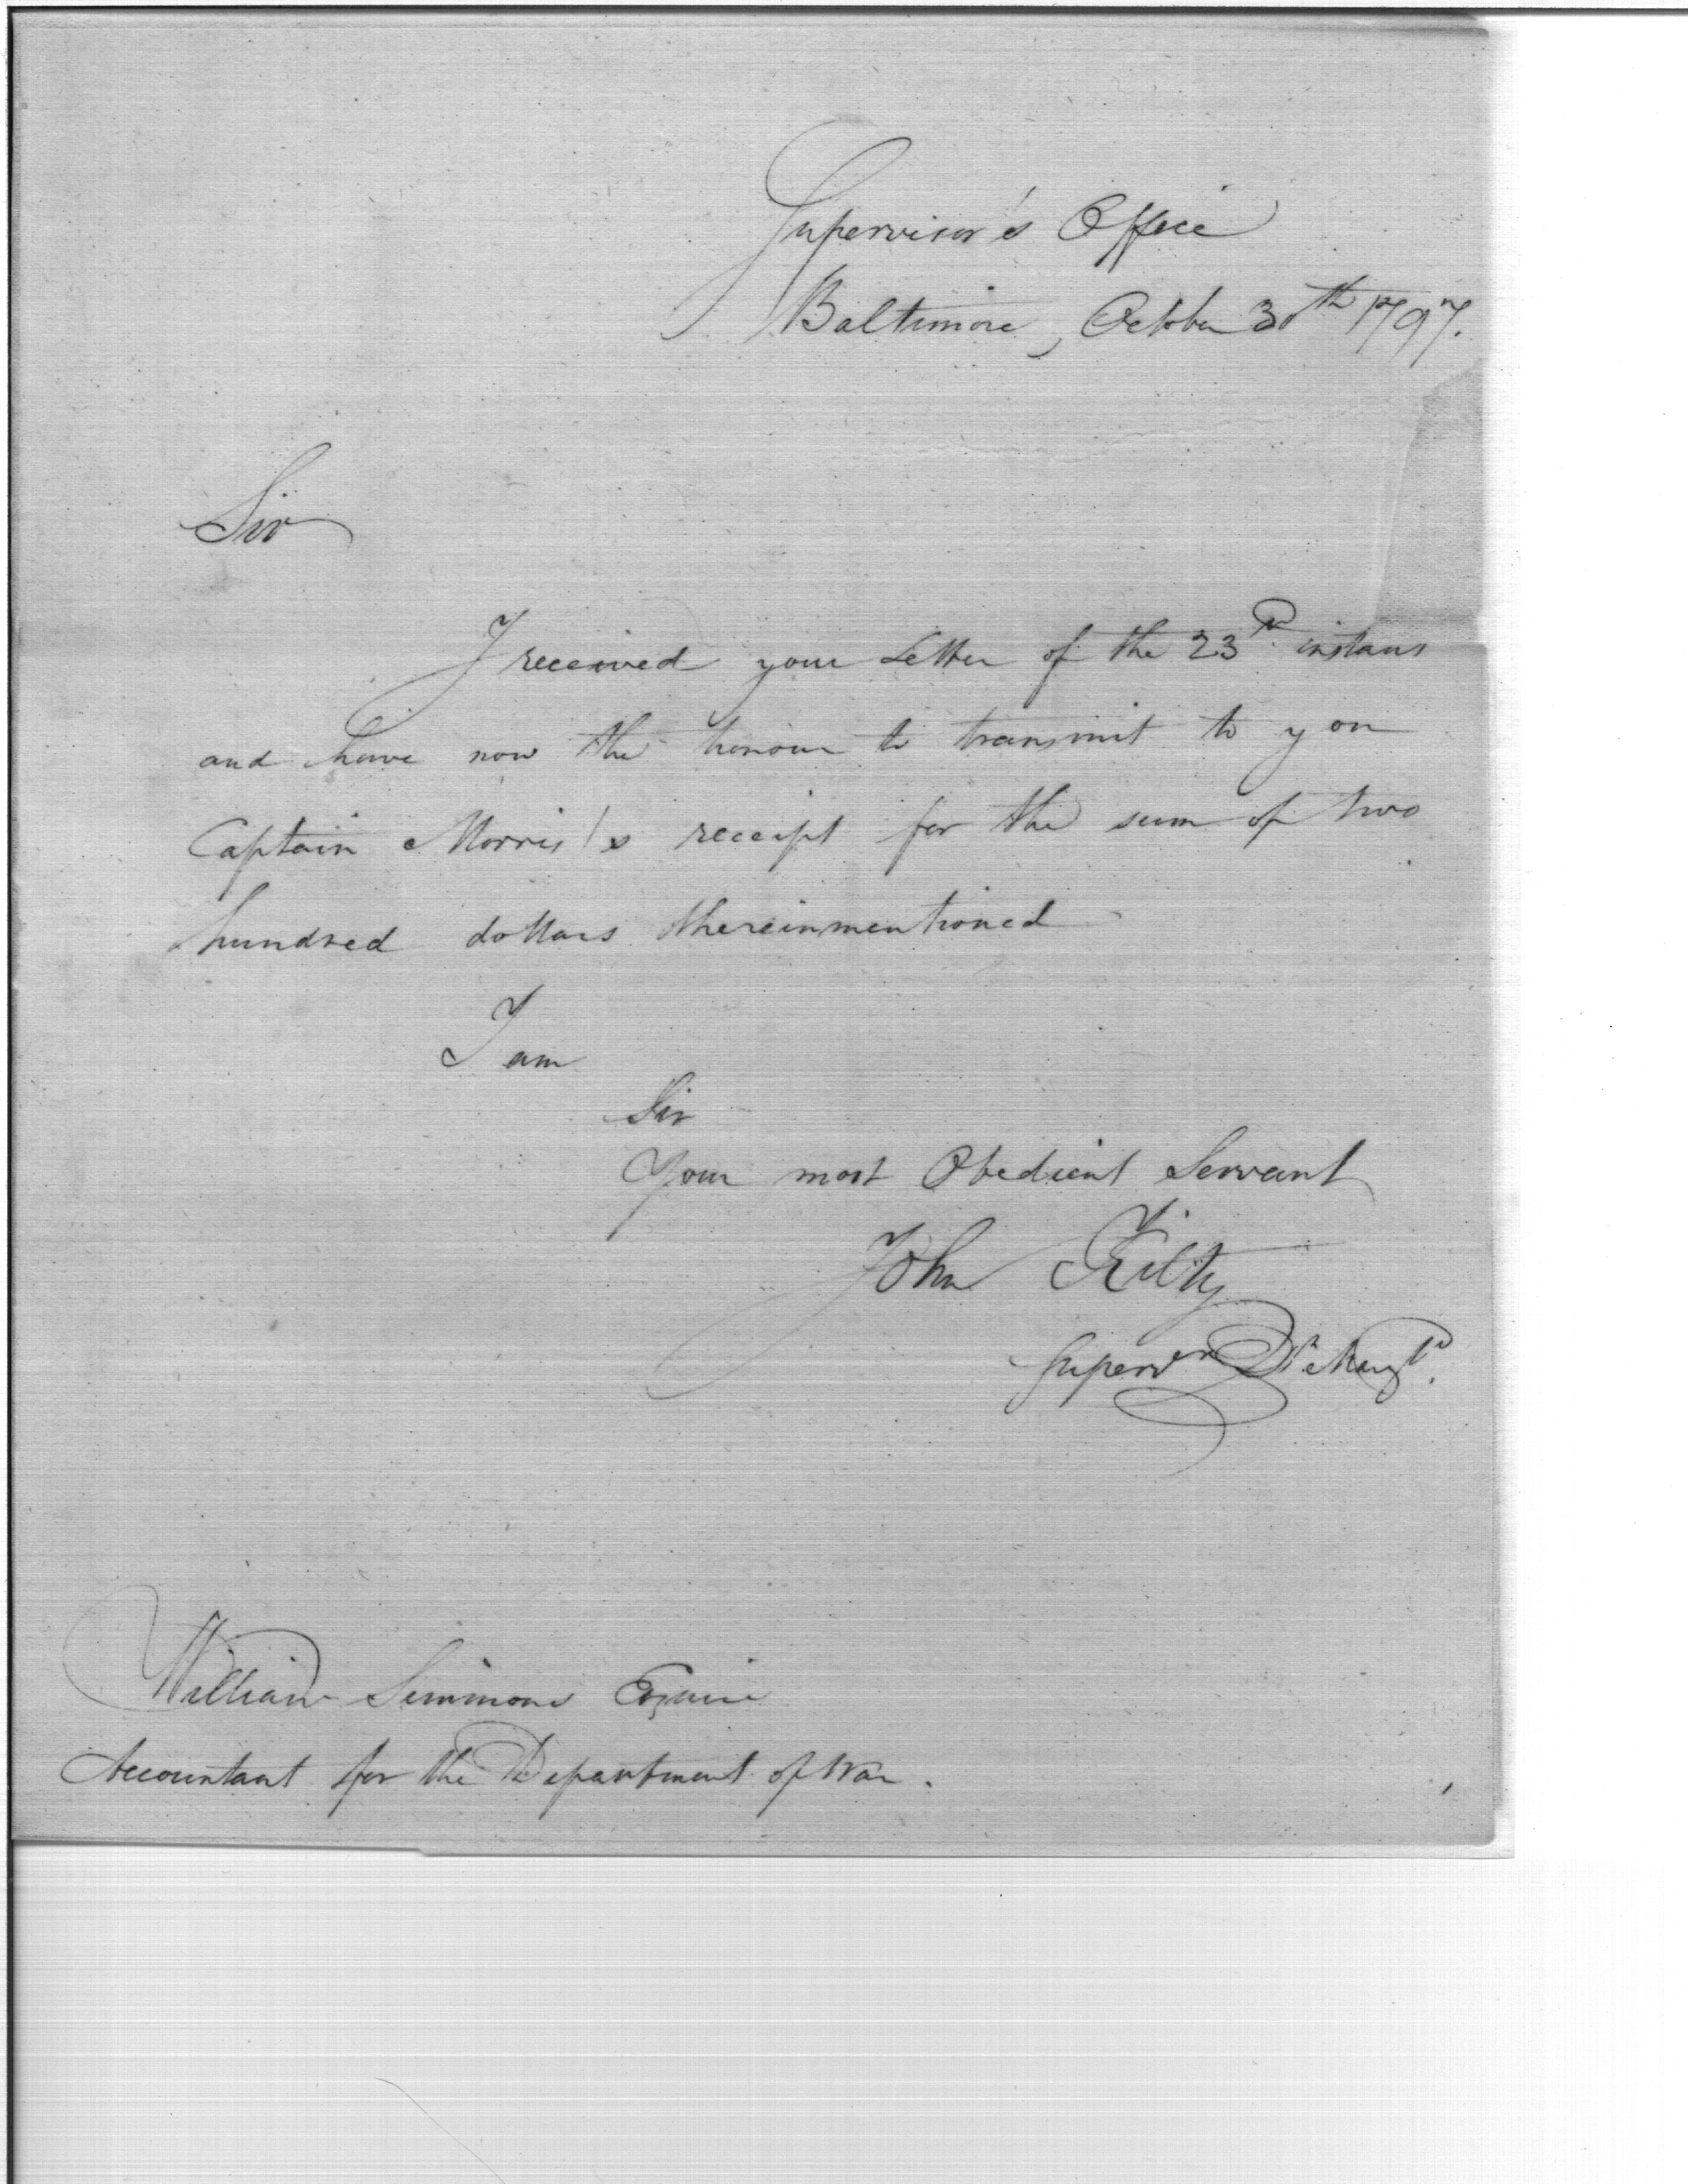 Supervisor's Office
Baltimore, October 30th 1797.
Sir
I received your Letter of the 23d instant
and have now the honour to transmit to you
Captain Morris's receipt for the sum of two
hundred dollars thereinmentioned
I am
Sir
Your most Obedient Servant
John Kilty
Superv.r Dt Maryld.
William Simmons Esquire
Accountant for the Department of War.